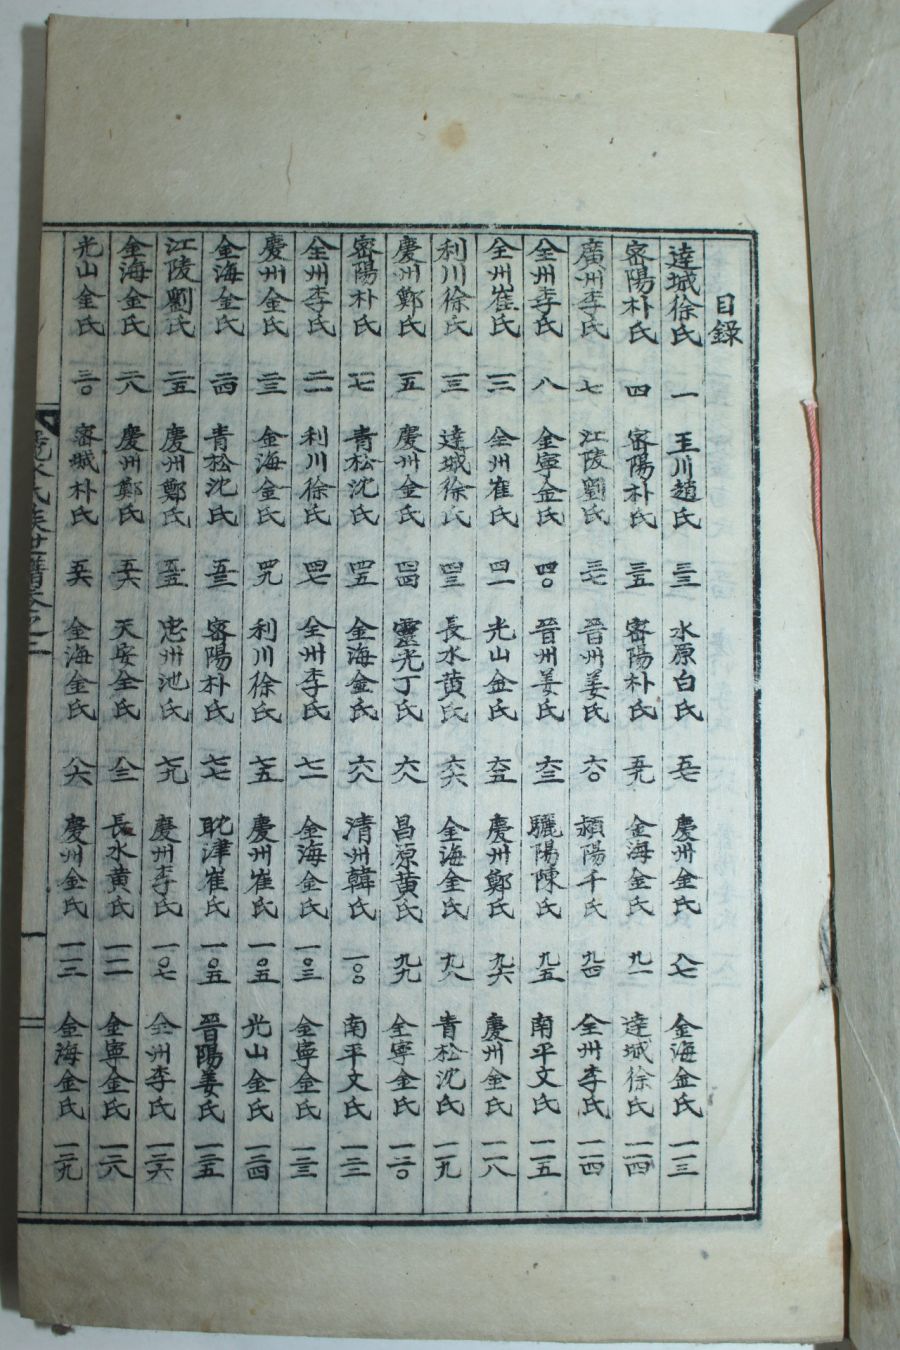 目錄
達城徐氏 一 玉川趙氏 三三 水原白氏 五七 慶州金氏 八七 金海金氏 一一三
密陽朴氏 四 密陽朴氏 三五 密陽朴氏 五九 金海金氏 九一 達城徐氏 一一四
廣州李氏 七 江陵劉氏 三七 晉州姜氏 六〇 潁陽千氏 九四 全州李氏 一一四
全州李氏 八 金寧金氏 四〇 晉州姜氏 六三 驪陽陳氏 九五 南平文氏 一一五
全州崔氏 一二 全州崔氏 四一 光山金氏 六五 慶州鄭氏 九六 慶州金氏 一一八
利川徐氏 一三 達城徐氏 四三 長水黃氏 六六 金海金氏 九八 青松沈氏 一一九
慶州鄭氏 一五 慶州金氏 四四 靈光丁氏 六八 昌原黃氏 九九 金寧金氏 一二〇
密陽朴氏 一七 青松沈氏 四五 金海金氏 六八 清州韓氏 一〇〇 南平文氏 一二二
全州李氏 二一 利川徐氏 四七 全州李氏 七一 金海金氏 一〇三 金寧金氏 一二三
慶州金氏 二三 金海金氏 四九 利川徐氏 七五 慶州崔氏 一〇五 光山金氏 一二四
金海金氏 二四 青松沈氏 五三 密陽朴氏 七七 耽津崔氏 一〇五 晉陽姜氏 一二五
江陵劉氏 二五 慶州鄭氏 五五 忠州池氏 七九 慶州李氏 一〇七 全州李氏 一二六
金海金氏 二八 慶州鄭氏 五六 天安全氏 八三 長水黃氏 一一一 金寧金氏 一二八
光山金氏 三〇 密城朴氏 五六 金海金氏 八六 慶州金氏 一一二 金海金氏 一二九
氏族世譜卷之